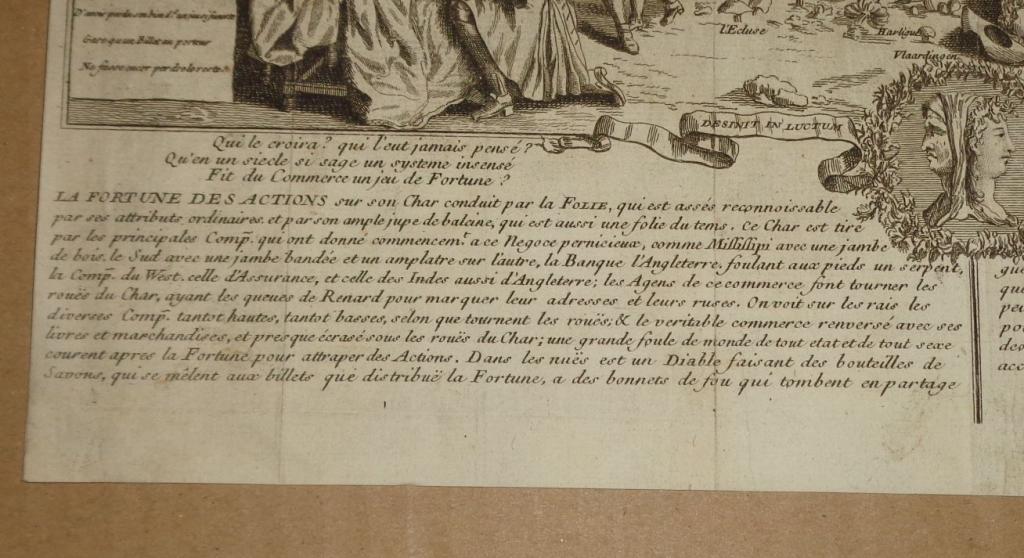 D'avoir perdu son bien d'un jeu injuste
Gare qu'un Billet au porteur
Ne fasse encor perdre le reste.
l'Ecluse
Harlique
Vlaardingen
DESINIT IN LUCTUM
Qui le croira? qui l'eut jamais pensé?
Qu'en un siecle si sage un systeme insensé
Fit du Commerce un jeu de Fortune?
LA FORTUNE DES ACTIONS sur son Char conduit par la FOLIE, qui est assés reconnoissable
par ses attributs ordinaires, et par son ample jupe de baleine, qui est aussi une folie du tems. Ce Char est tiré
par les principales Comp. qui ont donné commencem.t a ce Negoce pernicieux, comme Missisipi avec une jambe
de bois, le Sud avec une jambe bandée et un amplatre sur l'autre, la Banque l'Angleterre, foulant aux pieds un serpent,
la Comp. du West. celle d'Assurance, et celle des Indes aussi d'Angleterre; les Agens de ce commerce font tourner les
rouës du Char, ayant les queues de Renard pour marquer leur adresses et leurs ruses. On voit sur les rais les
diverses Comp. tantot hautes, tantot basses, selon que tournent les rouës; & le veritable commerce renversé avec ses
livres et marchandises, et presque écrasé sous les rouës du Char; une grande foule de monde de tout etat et de tout sexe
courent apres la Fortune pour attraper des Actions. Dans les nuës est un Diable faisant des bouteilles de
Savons, qui se mêlent aux billets que distribuë la Fortune, a des bonnets de fou qui tombent en partage